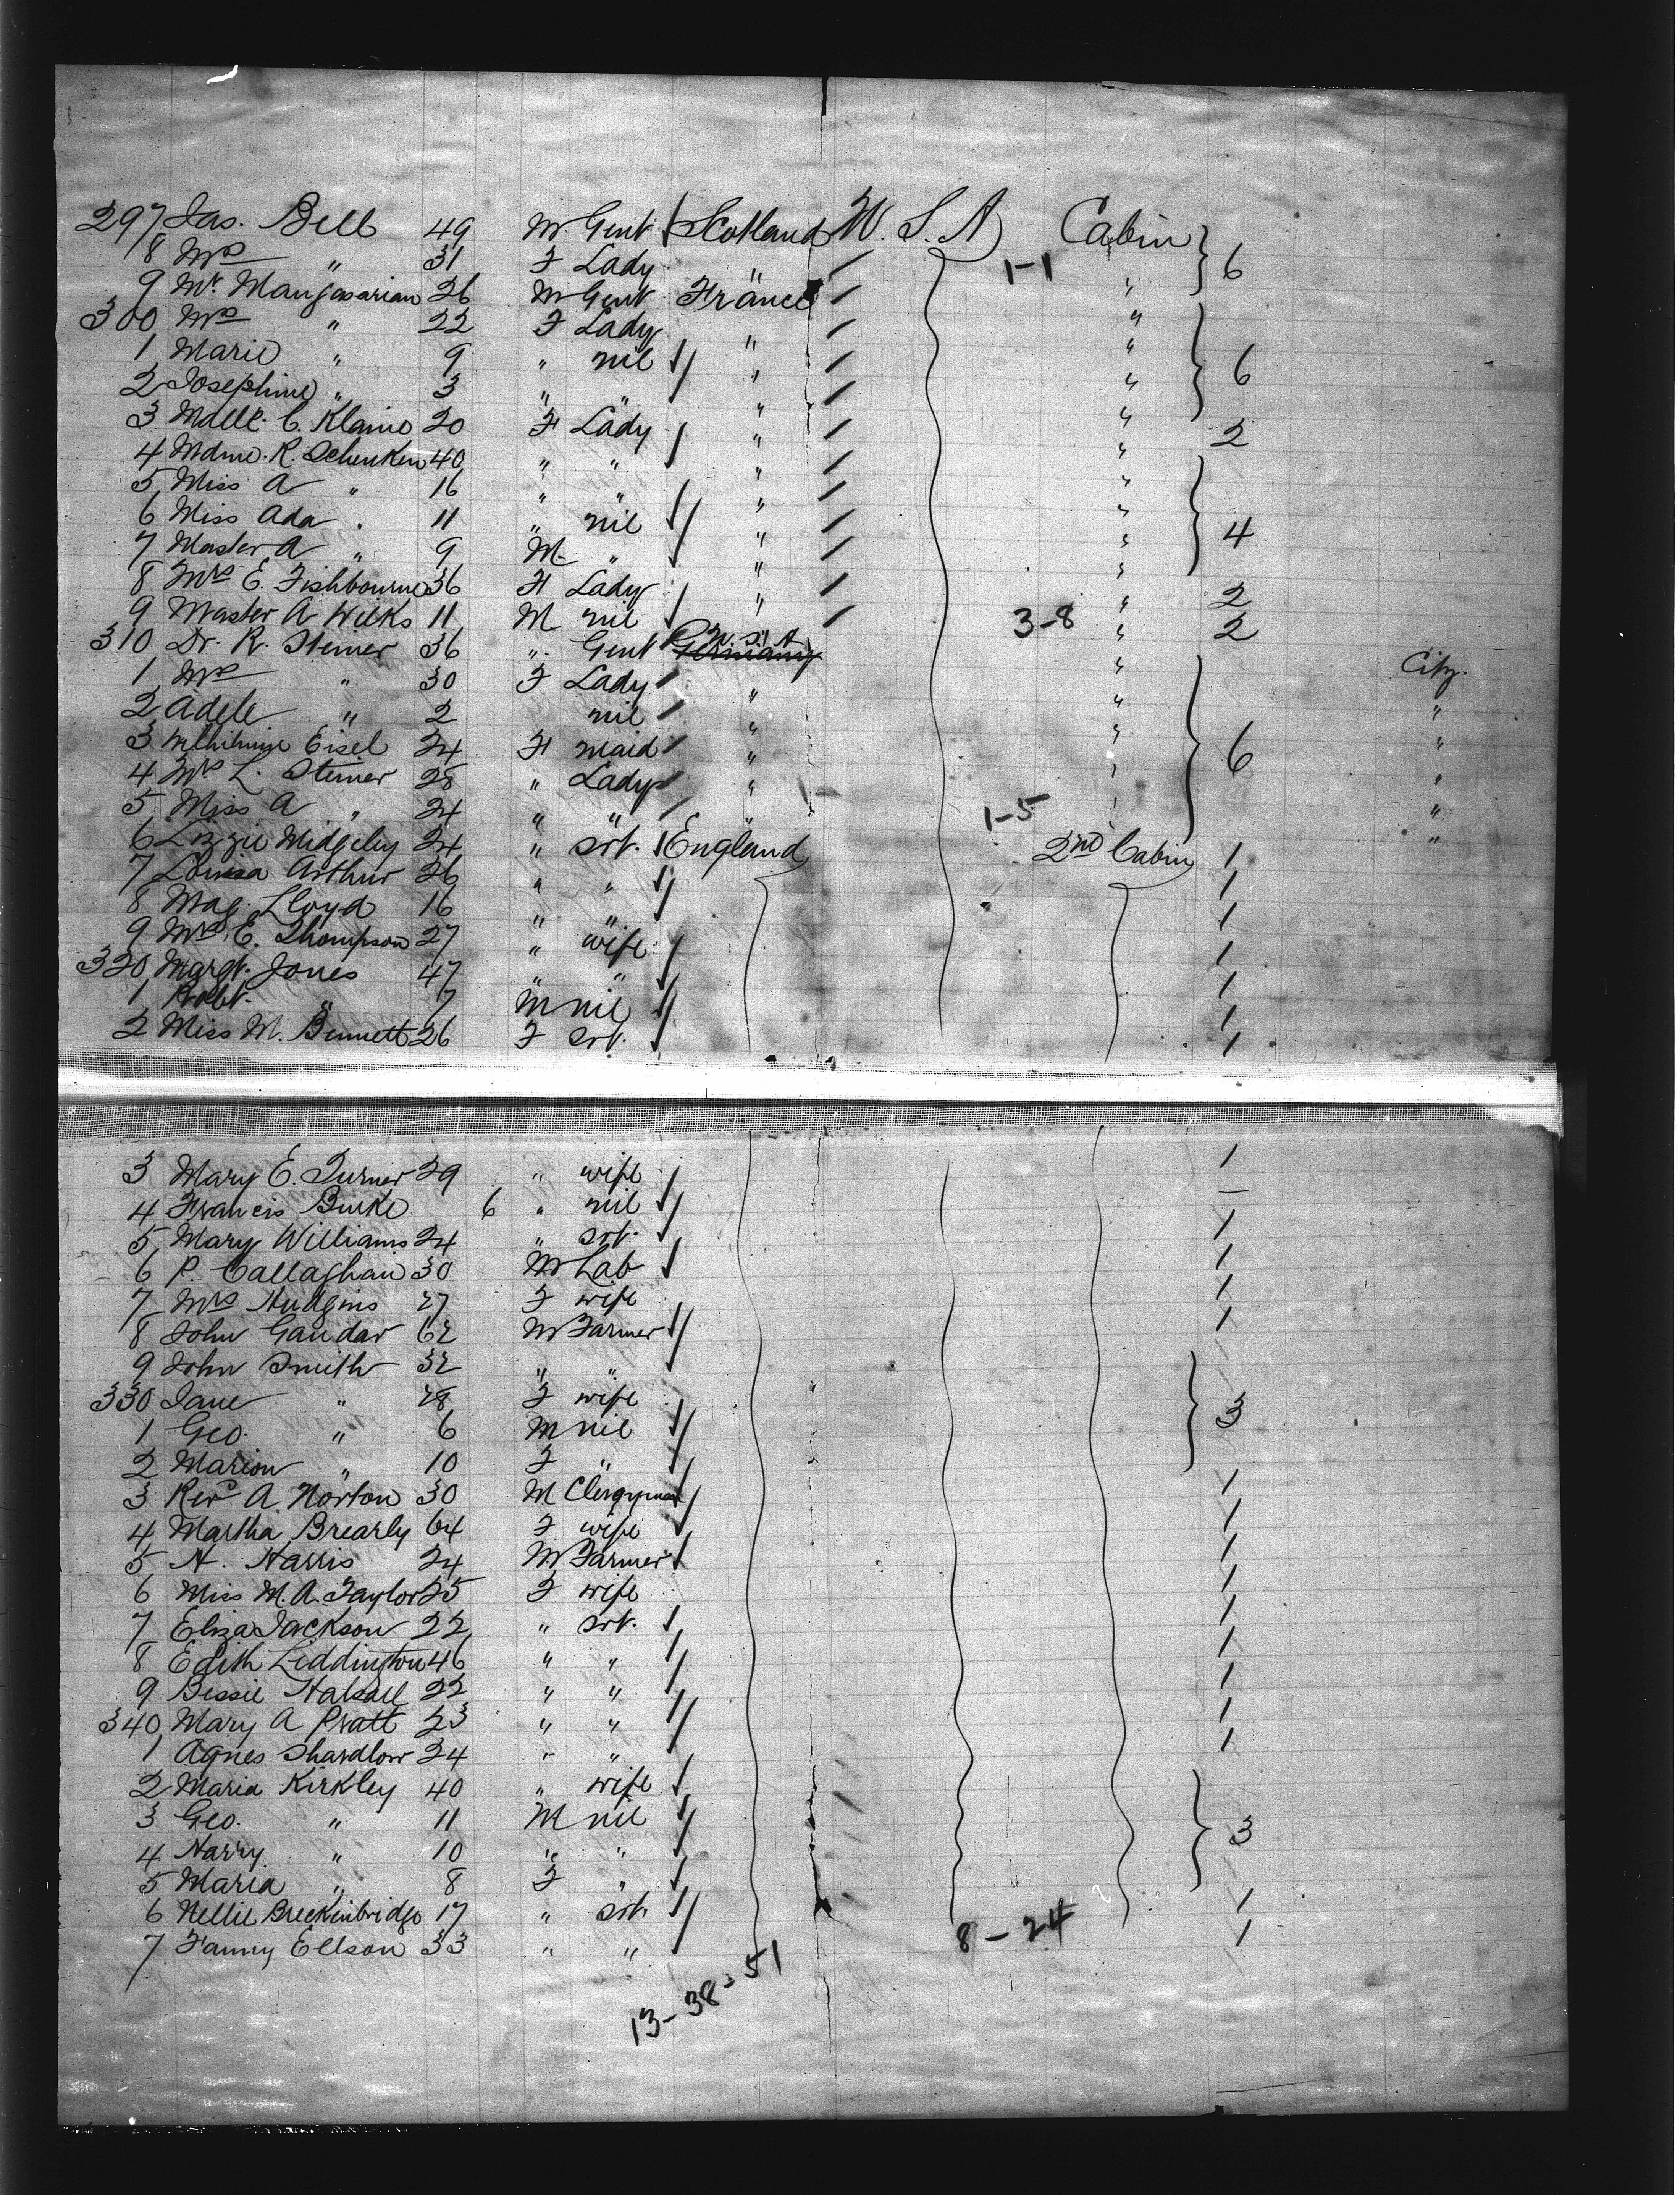 297 Jas. Bell 49 M Gent Scotland U.S.A Cabin 6
8 Mrs " 31 F Lady " 1-1 "
9 Mr. Mangasarian 26 M Gent France "
300 Mrs " 22 F Lady " "
1 Marie " 9 " nil " " 6
2 Josephine " 3 " " " "
3 Madlle. C. Klaine 20 F Lady " " 2
4 Mdme. R. Schenken 40 " " " "
5 Miss A " 16 " " " "
6 Miss Ada " 11 " nil " " 4
7 Master A " 9 M " " "
8 Mrs E. Fishbourne 36 F Lady " " 2
9 Master A Wilks 11 M nil 3-8 " 2
310 Dr. R. Steiner 36 " Gent Germany U.S.A " City.
1 Mrs " 30 F Lady " " "
2 Adele " 2 nil " " "
3 Wilhilmine Eisel 24 F maid " " 6 "
4 Mrs L. Steiner 28 " Lady " " "
5 Miss A " 24 " " " 1-5 " "
6 Lizzie Midgeley 24 " srt. England 2nd Cabin 1
7 Louisa Arthur 26 " " 1
8 Mag. Lloyd 16 " " 1
9 Mrs E. Thompson 27 " wife 1
320 Margt. Jones 47 " " 1
1 Robt. " 7 M nil 1
2 Miss M. Bennett 26 F srt. 1
3 Mary E. Turner 29 " wife 1
4 Francis Burke 6 " nil —
5 Mary Williams 24 " srt. 1
6 P. Callaghan 30 M Lab 1
7 Mrs Hudgins 27 F wife 1
8 John Gandar 62 M Farmer 1
9 John Smith 32 " "
330 Jane " 28 F wife 3
1 Geo. " 6 M nil
2 Marion " 10 F "
3 Revd A. Norton 30 M Clergyman 1
4 Martha Brearly 64 F wife 1
5 H. Harris 24 M Farmer 1
6 Miss M. A. Taylor 25 F wife 1
7 Eliza Jackson 22 " srt. 1
8 Edith Liddington 46 " " 1
9 Bessie Halsall 22 " " 1
340 Mary A Pratt 23 " " 1
1 Agnes Shardlow 24 " " 1
2 Maria Kirkley 40 " wife
3 Geo. " 11 M nil 3
4 Harry " 10 " "
5 Maria " 8 F "
6 Nellie Breckinbridge 17 " srt 1
7 Fanny Ellson 33 " " 8-24 1
13-38=51